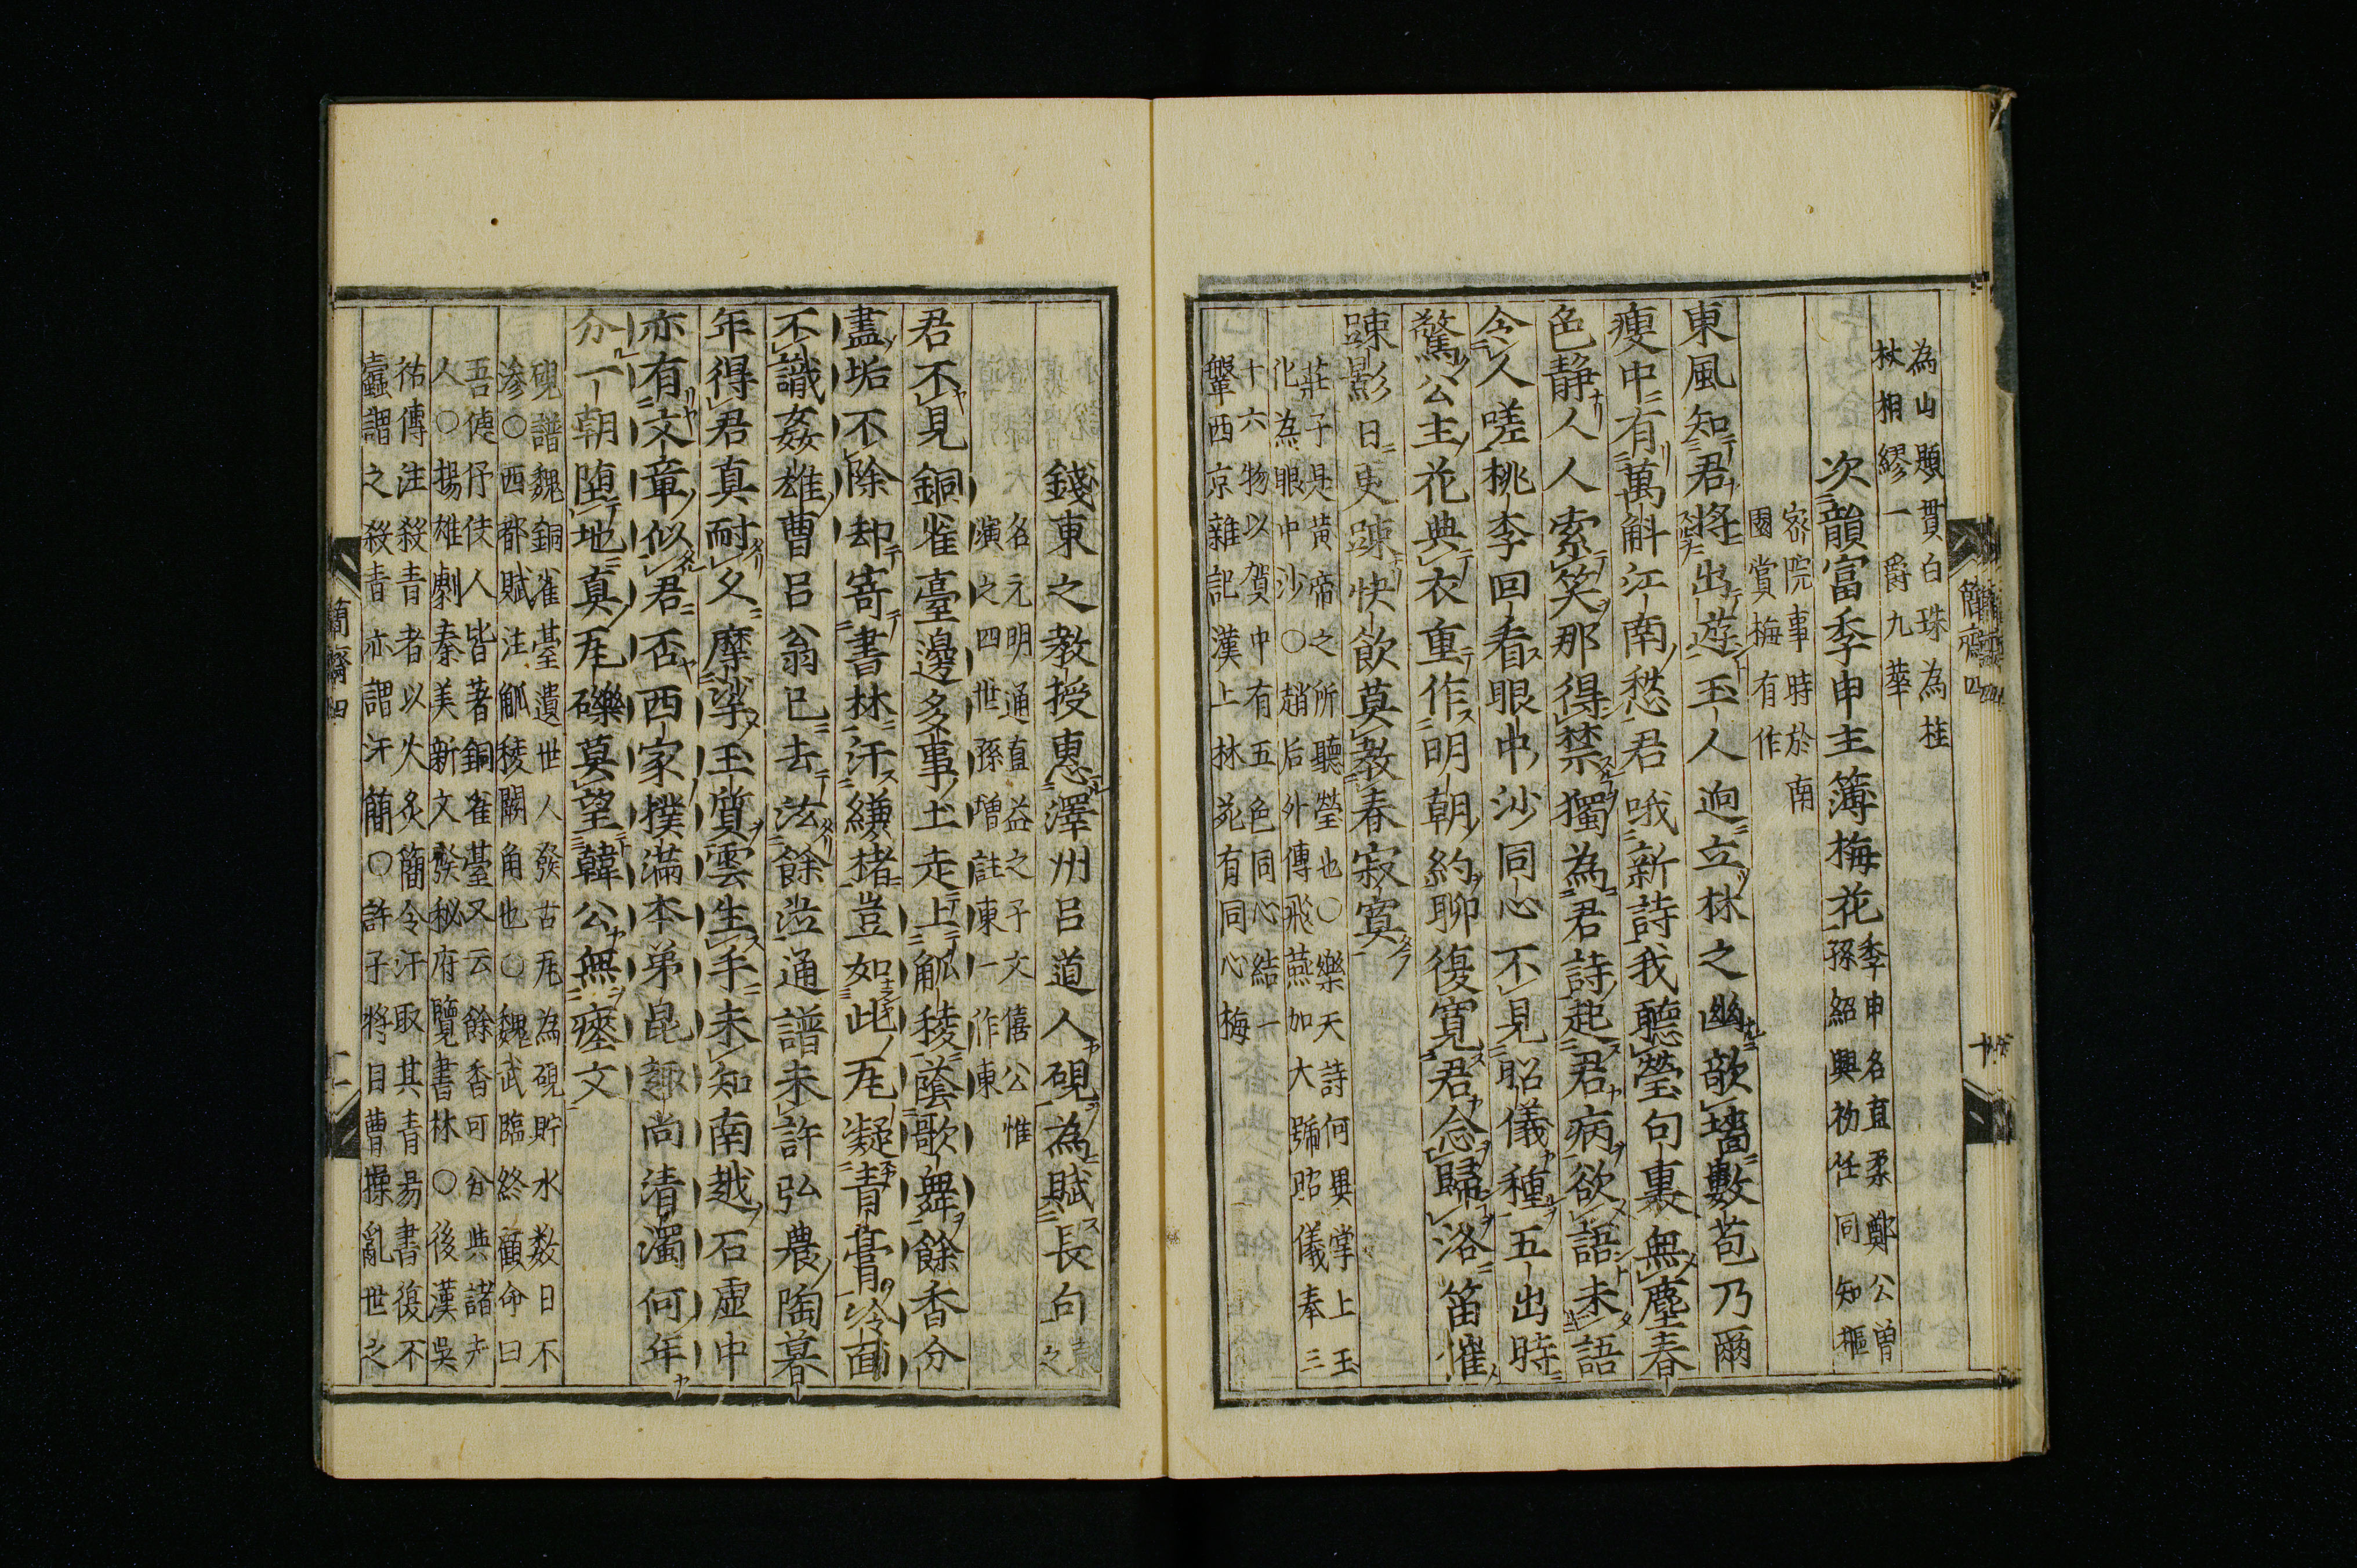 為山題貫白珠為桂
枝相繆一爵九華
次韻富季申主簿梅花
季申名直柔鄭公曽
孫紹興初任同知樞
宻院事時於南
園賞梅有作
東風知君將出遊玉人逈立林之幽歆墻數苞乃爾
瘦中有萬斛江南愁君哦新詩我聽瑩句裏無塵春
色靜人人索笑那得禁獨為君詩起君病欲語未語
令人嗟桃李回看眼中沙同心不見昭儀種五出時
驚公主花典衣重作明朝約聊復寛君念歸洛笛催
踈影日更踈快飲莫教春寂寞
莊子是黃帝之所聽瑩也○樂天詩何異掌上玉
化為眼中沙○趙后外傳飛燕加大號昭儀奉三
十六物以賀中有五色同心結一
盤西京雜記漢上林苑有同心梅
簡齋四
錢東之教授惠澤州吕道人硯為賦長句
東之
名元明通直益之子文僖公惟
演之四世孫增註東一作東
君不見銅雀臺邊多事土走上觚稜蔭歌舞餘香分
盡垢不除却寄書林汗縑楮豈如此瓦凝青膏冷面
不識姦雄曹吕翁已去泫餘泣通譜未許弘農陶暮
年得君真耐久摩挲玉質雲生手未知南越石虚中
亦有文章似君否西家撲滿本弟昆趣尚清濁何年
分一朝墮地真瓦礫莫望韓公無瘞文
硯譜魏銅雀臺遺世人發古瓦為硯貯水数日不
滲○西都賦注觚稜闕角也○魏武臨終顧命曰
吾倢伃伎人皆著銅雀䑓又云餘香可分與諸夫
人○揚雄劇秦美新文發秘府覽書林○後漢吳
祐傳注殺青者以火炙簡令汗取其青易書復不
蠹謂之殺青亦謂汗簡○許子將目曹操亂世之
簡齋四